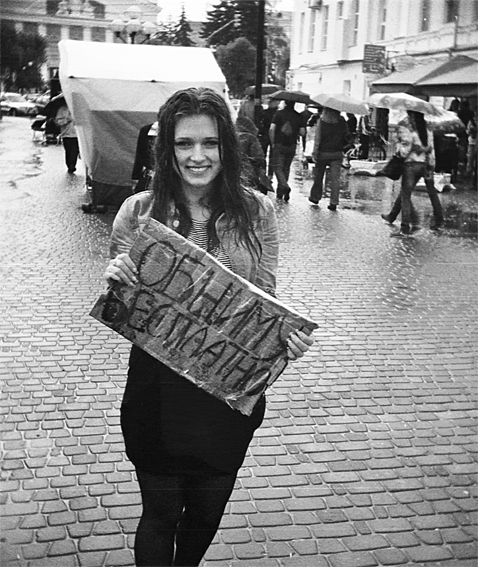 ОБНИМУ
БЕСПЛАТНО